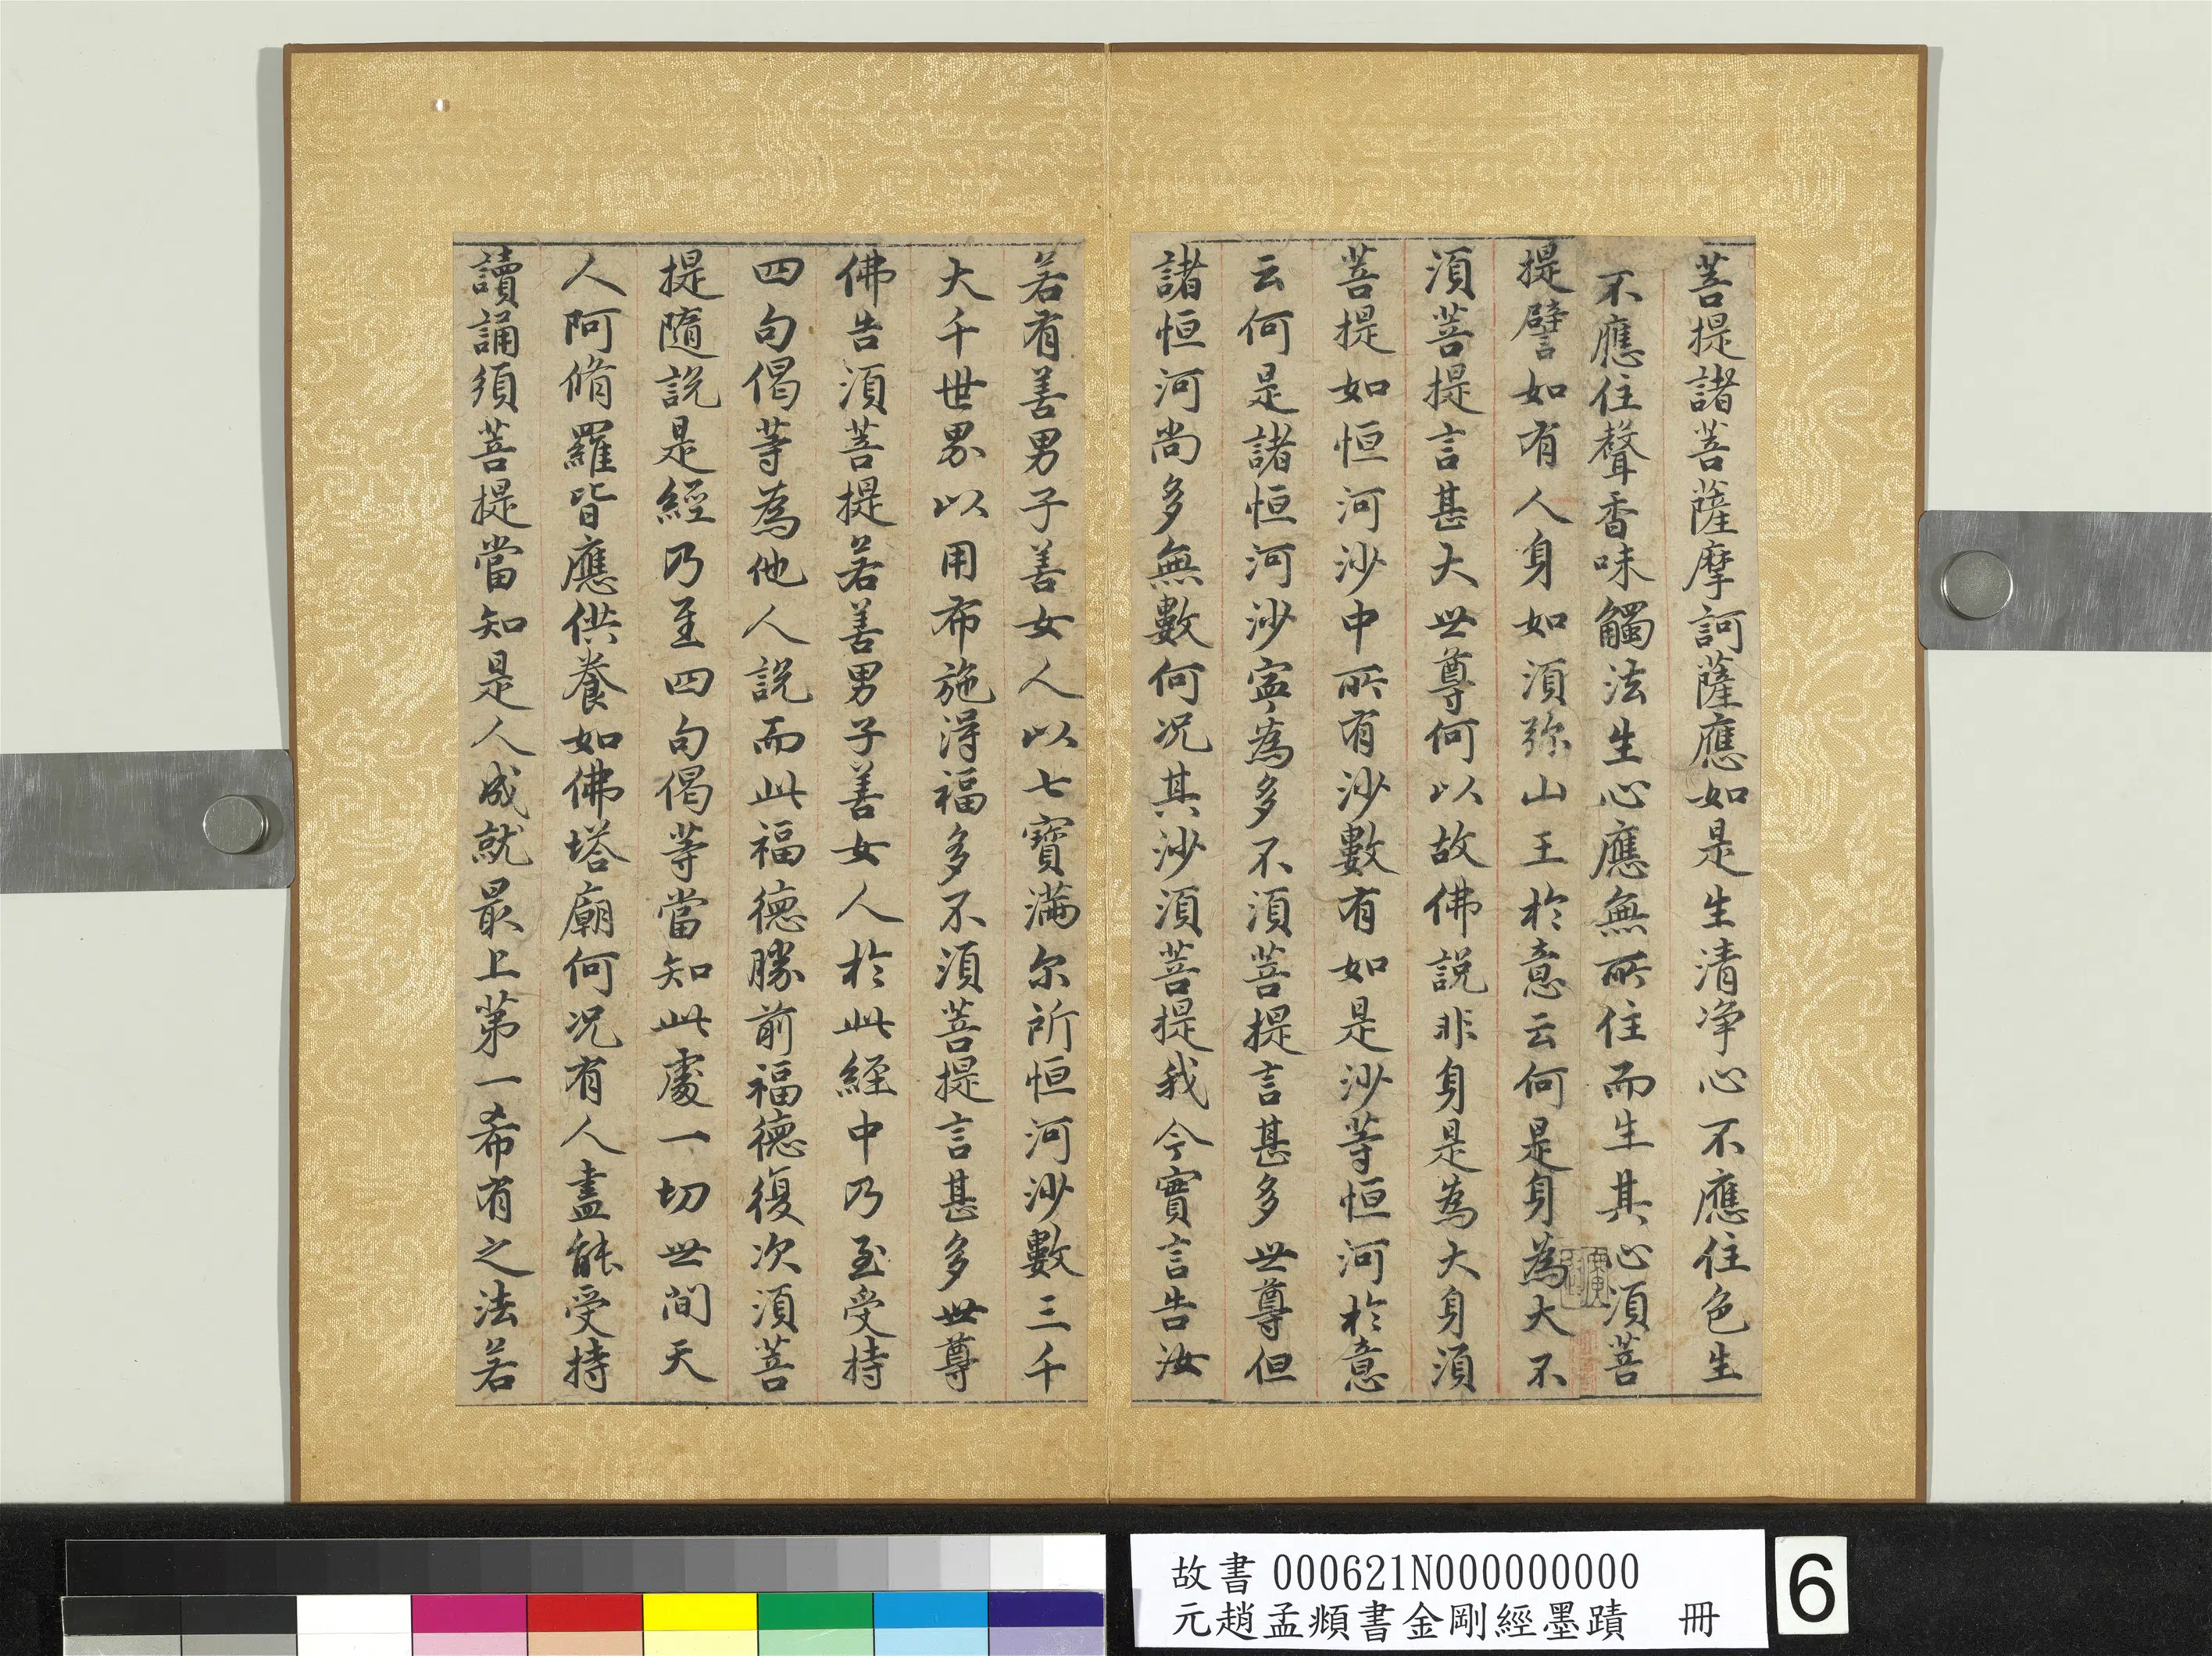 菩提諸菩薩摩訶薩應如是生清淨心不應住色生
不應住聲香味觸法生心應無所住而生其心須菩
提譬如有人身如須弥山王於意云何是身為大不
須菩提言甚大世尊何以故佛説非身是為大身須
菩提如恒河沙中所有沙數有如是沙等恒河於意
云何是諸恒河沙寧為多不須菩提言甚多世尊但
諸恒河尚多無數何况其沙須菩提我今實言告汝
若有善男子善女人以七寶滿尔所恒河沙數三千
大千世界以用布施得福多不須菩提言甚多世尊
佛告須菩提若善男子善女人於此經中乃至受持
四句偈等為他人説而此福德勝前福德復次須菩
提隨説是經乃至四句偈等當知此處一切世間天
人阿脩羅皆應供養如佛塔廟何况有人盡能受持
讀誦須菩提當知是人成就最上第一希有之法若
故書 000621N000000000
元趙孟頫書金剛經墨蹟 冊
6